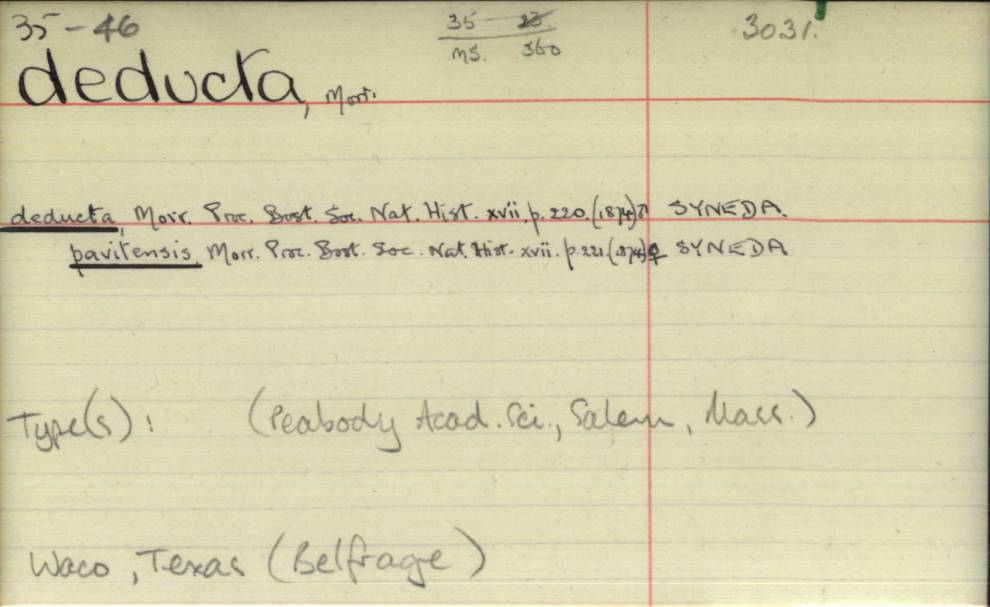 35-46 35 23 3031.
ms. 360
deducta, Morr.
deducta, Morr. Proc. Bost. Soc. Nat. Hist. xvii, p. 220. (1874) ♂ SYNEDA.
pavitensis Morr. Proc. Bost. Soc. Nat. Hist. xvii. p. 221. (1874) ♀ SYNEDA
Type(s): (Peabody Acad. Sci., Salem, Mass.)
Waco, Texas (Belfrage)